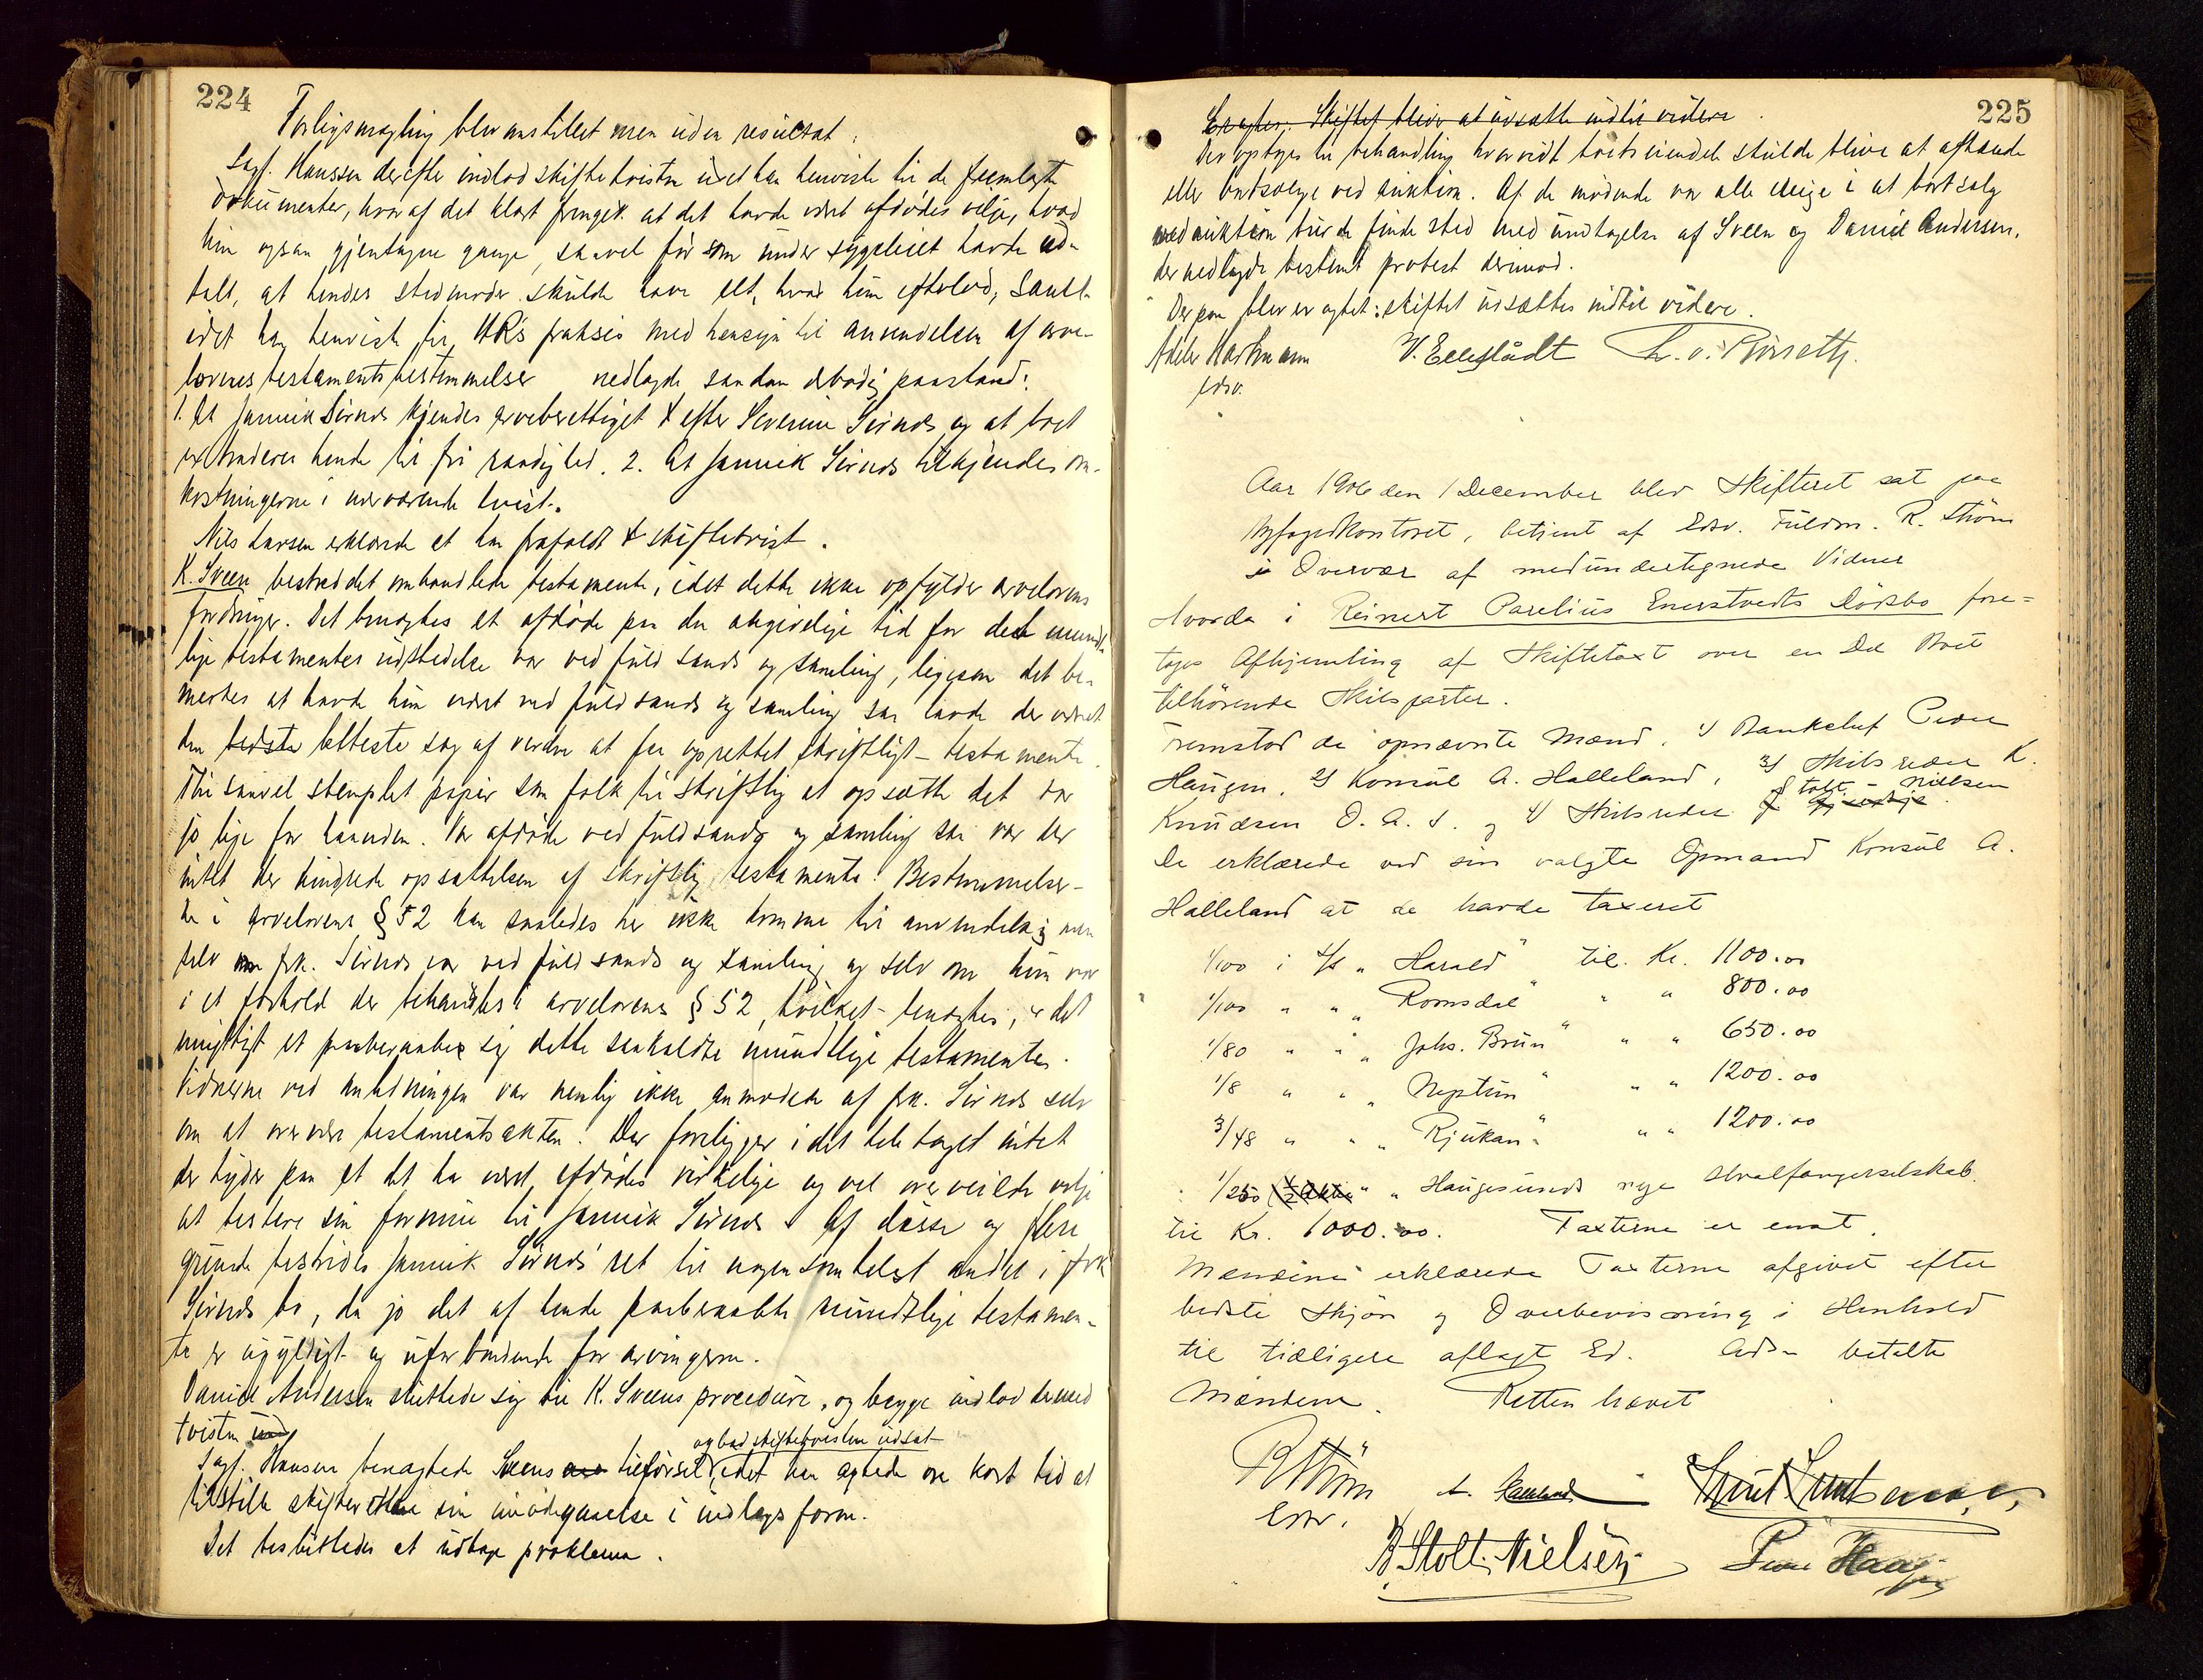 224
Forligsmægling blev anstillet men uden resultat.
Sagf. Hanssen derefter indlod skiftetvisten idet han henviste til de fremlagte
dokumenter, hvoraf det klart fremgik at det havde været afdødes vilje, hvad
hun ogsaa gjentagne gange, saavel før som under sygeleiet havde ud-
talt, at hendes stedmoder skulde have alt, hvad hun efterlod, samt
idet han henviste til HRs praksis med hensyn til anvendelsen af arve-
lovens testamentsbestemmelser nedlagde saadan ærbødig paastand:
1. At Jannik Sirnes kjendes arveberettiget efter Severine Sirnes og at boet
extraderes hende til fri raadighed. 2. At Jannik Sirnes tilkjendes om-
kostningerne i nærværende tvist.
Nils Larsen erklærede at han frafaldt skiftetvist.
K. Sveen bestred det omhandlede testamente, idet dette ikke opfylder arvelovens
fordringer. Det benægtes at afdøde paa den angivelige tid for det mundt-
lige testamentes udstedelse var ved fuld sands og samling, ligesom det be-
merkes at havde hun været ved fuld sands og samling saa havde der været
den bedste letteste sag af verden at faa oprettet skriftligt testamente.
Thi saavel stemplet papir som folk til skriftlig at opsætte det var
jo lige for haanden. Var afdøde ved fuld sands og samling saa var der
intet der hindrede opsættelsen af skriftlig testamente. Bestemmelser-
ne i arvelovens § 52 kan saaledes her ikke komme til anvendelse; men
selv om frk. Sirnes var ved fuld sands og samling og selv om hun var
i et forhold der behandles i arvelovens § 52, hvilket benægtes, er det
umuligt at paaberaabe sig dette saakaldte mundtlige testamente.
Vidnerne ved handlingen var nemlig ikke anmodede af frk. Sirnes selv
om at overvære testamentsakten. Der foreligger i det hele taget intet
der tyder paa at det har været afdødes virkelige og vel overveiede vilje
at testere sin formue til Jannik Sirnes. Af disse og flere
grunde bestrides Jannik Sirnes' ret til nogensomhelst andel i frk
Sirnes bo, da jo det af hende paaberaabte mundtlige testamen-
te er ugyldigt og uforbindende for arvingerne.
Daniel Andersen sluttede sig til K. Sveens procedure, og begge indlod dermed
tvisten
og bad skiftetvisten udsat
Sagf. Hanssen benægtede Sveens tilførsel, idet han agtede om kort tid at
tilstille skifteretten sin imødegaaelse i indlægs form.
Det besluttedes at udtage proklama.
225
Eragtes: Skiftet bliver at udsætte indtil videre
Der optoges til behandling hvorvidt boets eiendele skulde blive at afhænde
eller bortsælge ved auktion. Af de mødende var alle enige i at bortsalg
ved auktion burde finde sted med undtagelse af Sveen og Daniel Andersen,
der nedlagde bestemt protest derimod.
Derpaa blev eragtet: skiftet udsættes indtil videre.
Hartmann
edsv.
Aar 1906 den 1 December blev Skifteret sat paa
Byfogedkontoret, betjent af Edsv. Fuldm. R. Strøm
i Overvær af medundertegnede Vidner
hvorda i Reinert Parelius Enerstvedts Dødsbo fore=
toges Afhjemling af Skiftetaxt over en Del Boet
tilhørende Skibsparter.
Fremstod de opnævnte Mænd, 1) Bankchef Peder
Haugen, 2) Konsul A. Halleland, 3) Skibsreder K.
Knudsen O. A. S. og 4) Skibsreder B Stolt-Nielsen
De erklærede ved sin valgte Opmand Konsul A.
Halleland at de havde taxeret
1/100 i S/S "Harald" til Kr. 1100.00
1/100 " " "Romsdal" " " 800.00
1/80 " " "Johs. Brun" " " 650.00
1/8 " " "Neptun" " " 1200.00
3/48 " " "Rjukan" " " 1200.00
1/250 " " Haugesunds nye Hvalfangerselskab
til Kr. 1000.00. Taxterne er enst.
Mændene erklærede Taxterne afgivet efter
bedste Skjøn og Overbevisning i Henhold
til tidligere aflagt Ed. Adv. betalte
Mændene. Retten hævet
RStrøm
Edsv.
A. Halleland
Knut Knutsen O.A.S.
B Stolt-Nielsen
Peder Haugen